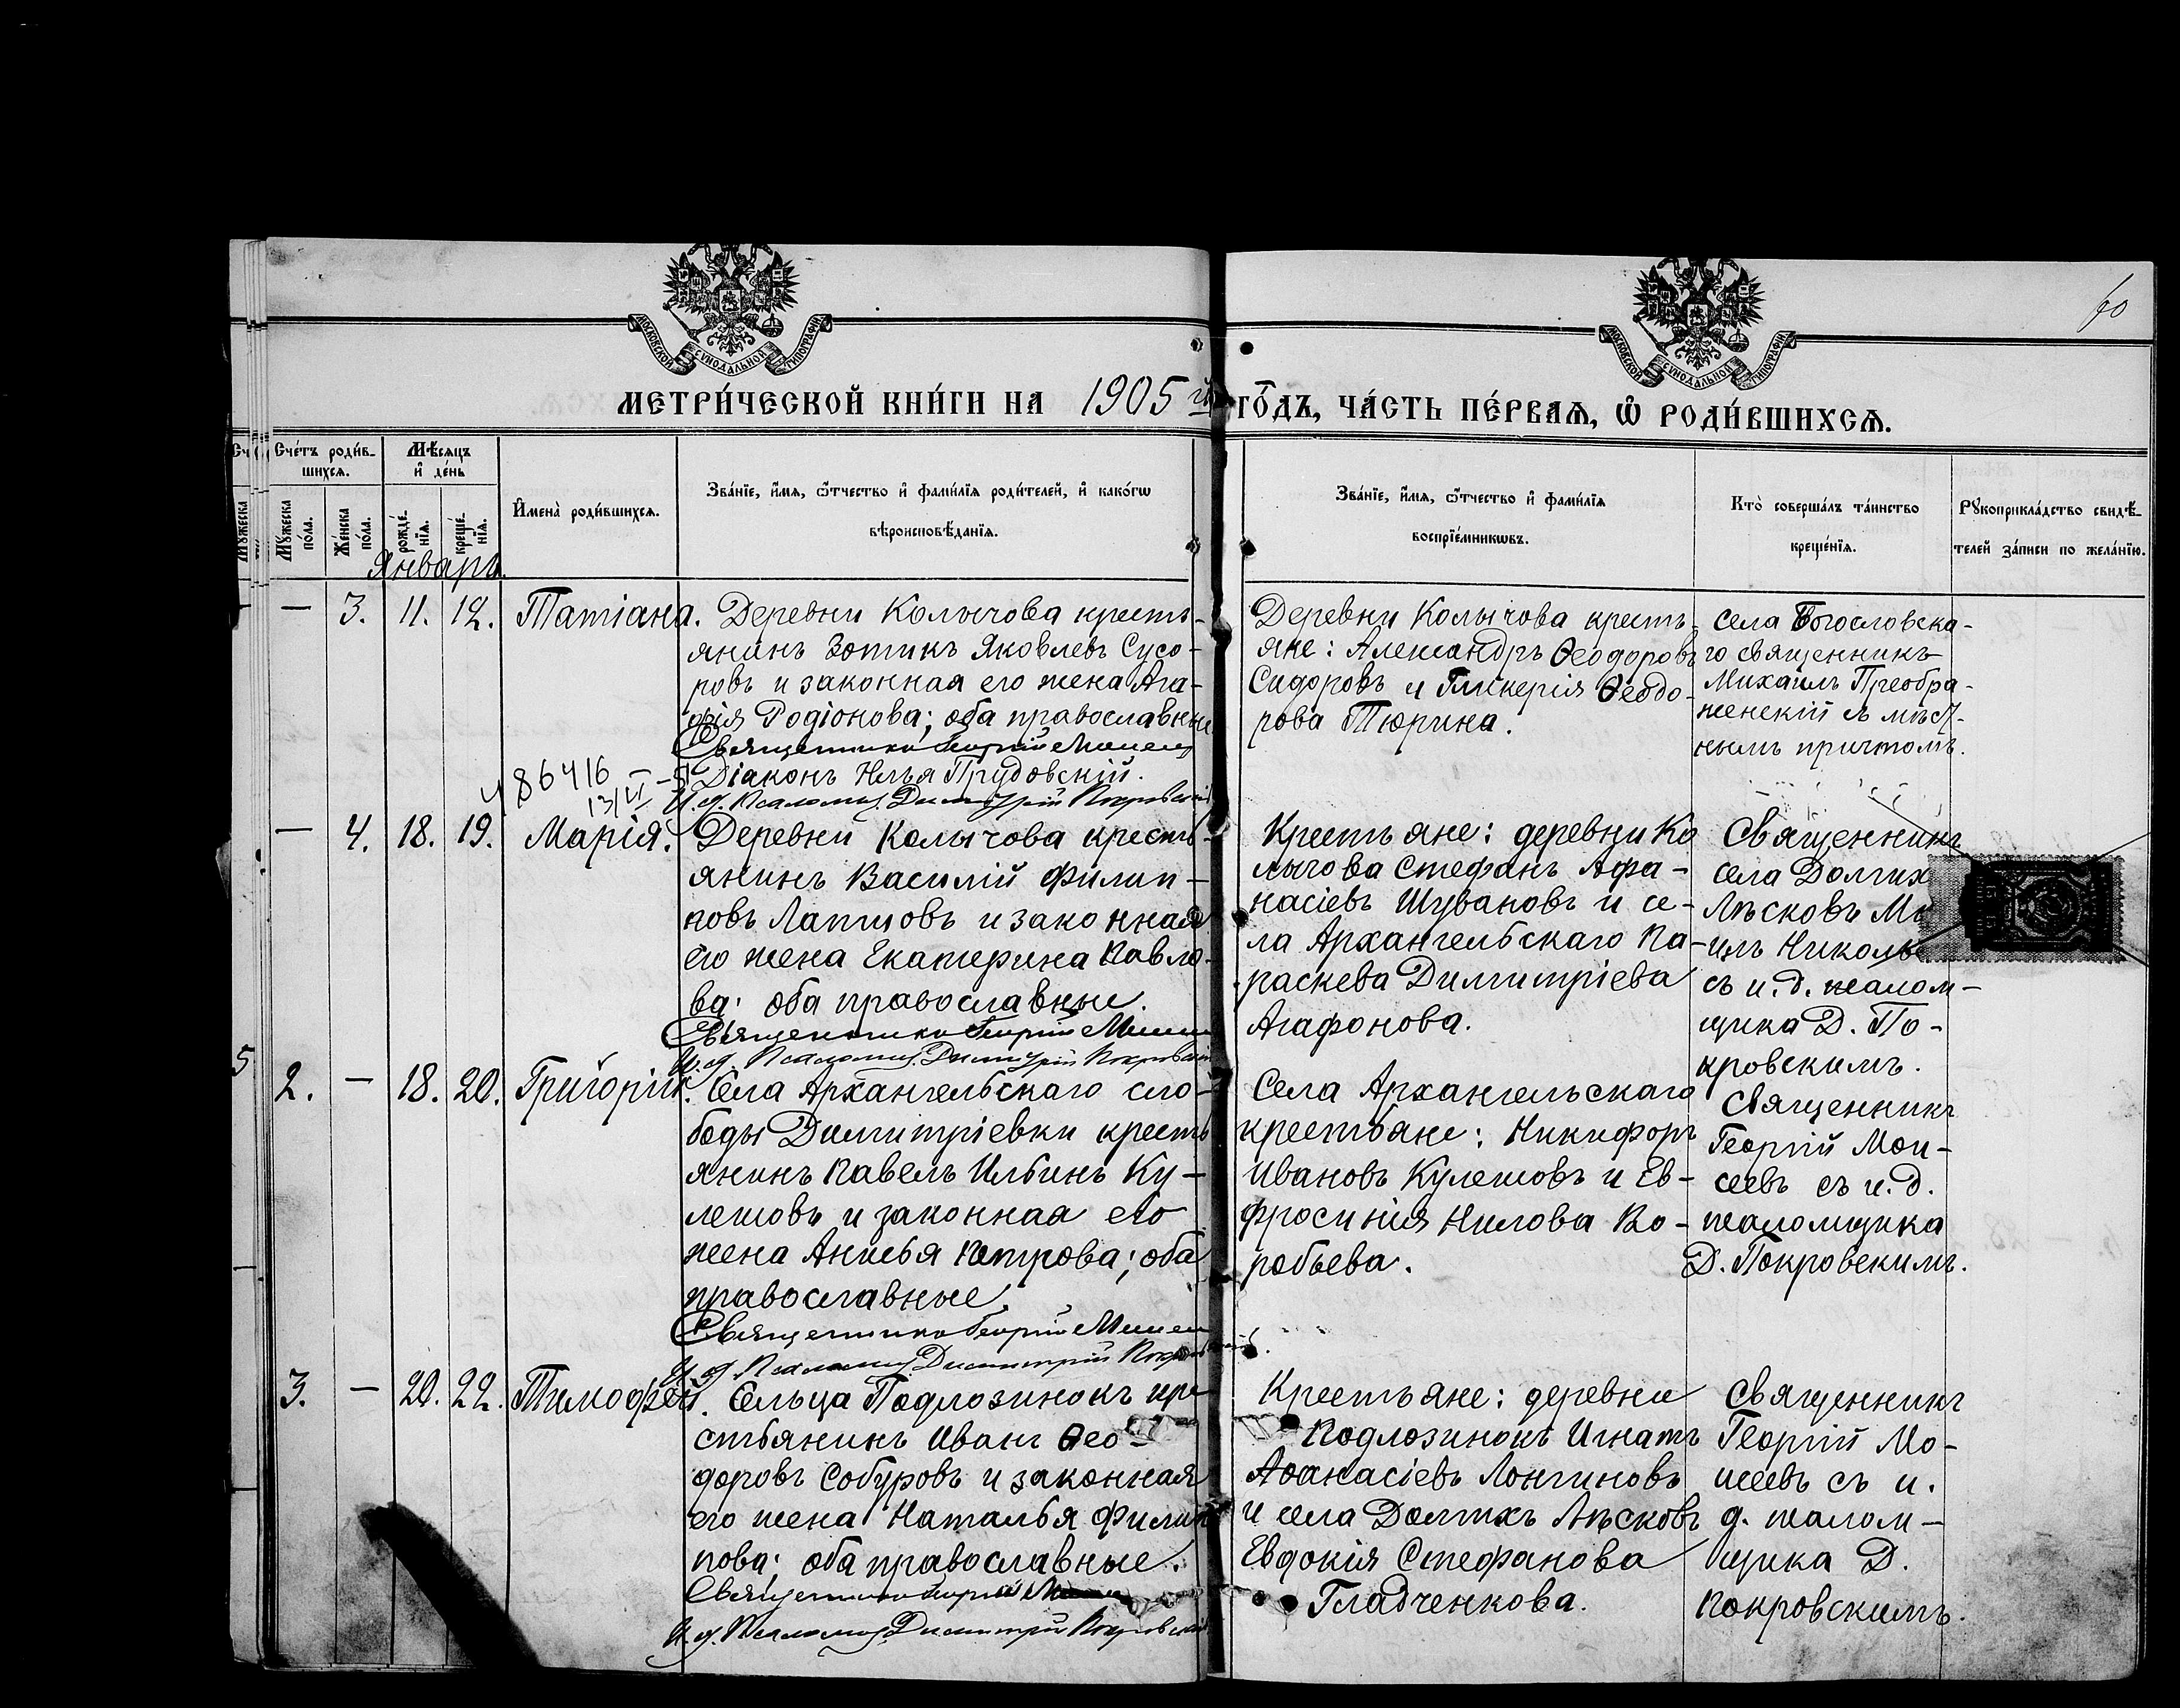 60
МОСКОВСКОЙ СѴНОДАЛЬНОЙ ТИПОГРАФІИ
МОСКОВСКОЙ СѴНОДАЛЬНОЙ ТИПОГРАФІИ
МЕТРИ́ЧЕСКОЙ КНИ́ГИ НА 1905 й ГО́ДЪ, ЧА́СТЬ ПЕ́РВАѦ, Ѡ҆ РОДИ́ВШИХСѦ.
Сче́тъ роди́в-
шихсѧ.
Мѣ́сѧцъ
и҆ де́нь
Мꙋ́жеска
по́ла.
Же́нска
по́ла.
рожде́-
нїѧ.
креще́-
нїѧ.
И҆мена̀ роди́вшихсѧ.
Зва́нїе, и҆́мѧ, ѻ҆́тчество и҆ фами́лїѧ роди́телей, и҆ како́гѡ
вѣроисповѣ́данїѧ.
Зва́нїе, и҆́мѧ, ѻ҆́тчество и҆ фами́лїѧ
воспрїе́мникѡвъ.
Кто̀ соверша́лъ та́инство
креще́нїѧ.
Рꙋкоприкла́дство свидѣ́-
телей за́писи по жела́нїю.
Январь.
— 3. 11. 12. Татіана.
Деревни Колычова кресть-
янинъ Зотикъ Яковлевъ Сусо-
ровъ и законная его жена Ага-
фія Родіонова; оба православные
Священникъ Георгій
Діаконъ Илья Прудовскій.
И. д. Псаломщ. Димитрій Покровскій
Деревни Колычова кресть-
яне: Александръ Ѳеодоровъ
Сидоровъ и Гликерія Ѳеодо-
рова Тюрина.
села Богословска-
го священникъ
Михаилъ Преобра-
женскій съ мѣст-
нымъ причтомъ.
86416
13/VI
— 4. 18. 19. Марія.
Деревни Колычова кресть-
янинъ Василій Филип-
повъ Лапшовъ и законная
его жена Екатерина Павло-
ва; оба православные.
Священникъ Георгій
И. д. Псаломщ. Димитрій Покровскій
Крестьяне: деревни Ко
лычова Стефанъ Афа-
насіевъ Шувановъ и се-
ла Архангельскаго Па-
раскева Димитріева
Агафонова.
Священникъ
села Долгих
Лѣсковъ Ми
илъ Николь
съ и. д. псалом-
щика Д. По-
кровскимъ.
5
2. — 18. 20. Григорій.
Села Архангельскаго сло-
боды Димитріевки кресть
янинъ Павелъ Ильинъ Ку-
лешовъ и законная его
жена Анисья Петрова; оба
православные.
Священникъ Георгій
И. д. Псаломщ. Димитрій Покровскій
Села Архангельскаго
крестьяне: Никифоръ
Ивановъ Кулешовъ и Ев-
фросинія Нилова Во-
робьева.
Священникъ
Георгій Мои-
сеевъ съ и. д.
псаломщика
Д. Покровскимъ.
3. — 20. 22. Тимофей.
Сельца Подлозинокъ кре
стьянинъ Иванъ Ѳео-
доровъ Собуровъ и законная
его жена Наталья Филип
пова; оба православные.
Священникъ Георгій
И. д. Псаломщ. Димитрій Покровскій
Крестьяне: деревни
Подлозинокъ Игнатъ
Аѳанасіевъ Лонгиновъ
и села Долгихъ Лѣсковъ
Евдокія Стефанова
Гладченкова.
Священникъ
Георгій Мо-
исеевъ съ и.
д. псалом-
щика Д.
Покровскимъ.